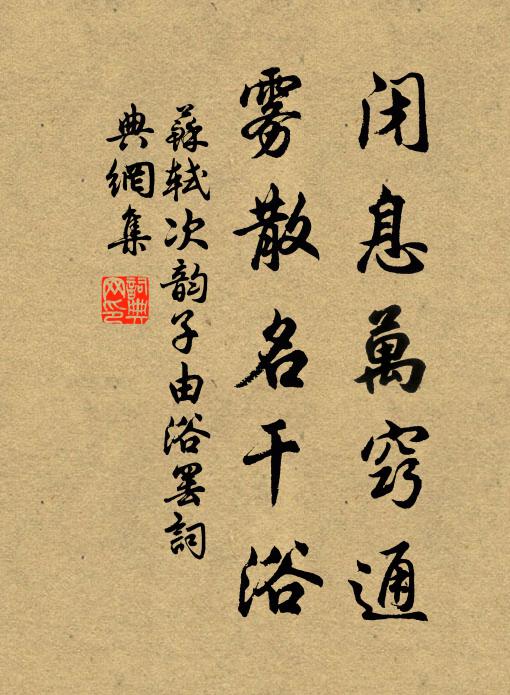 闭息萬窍通
雾散名干浴
蘇轼次韵子由浴罢詞
典網集
詞典網印